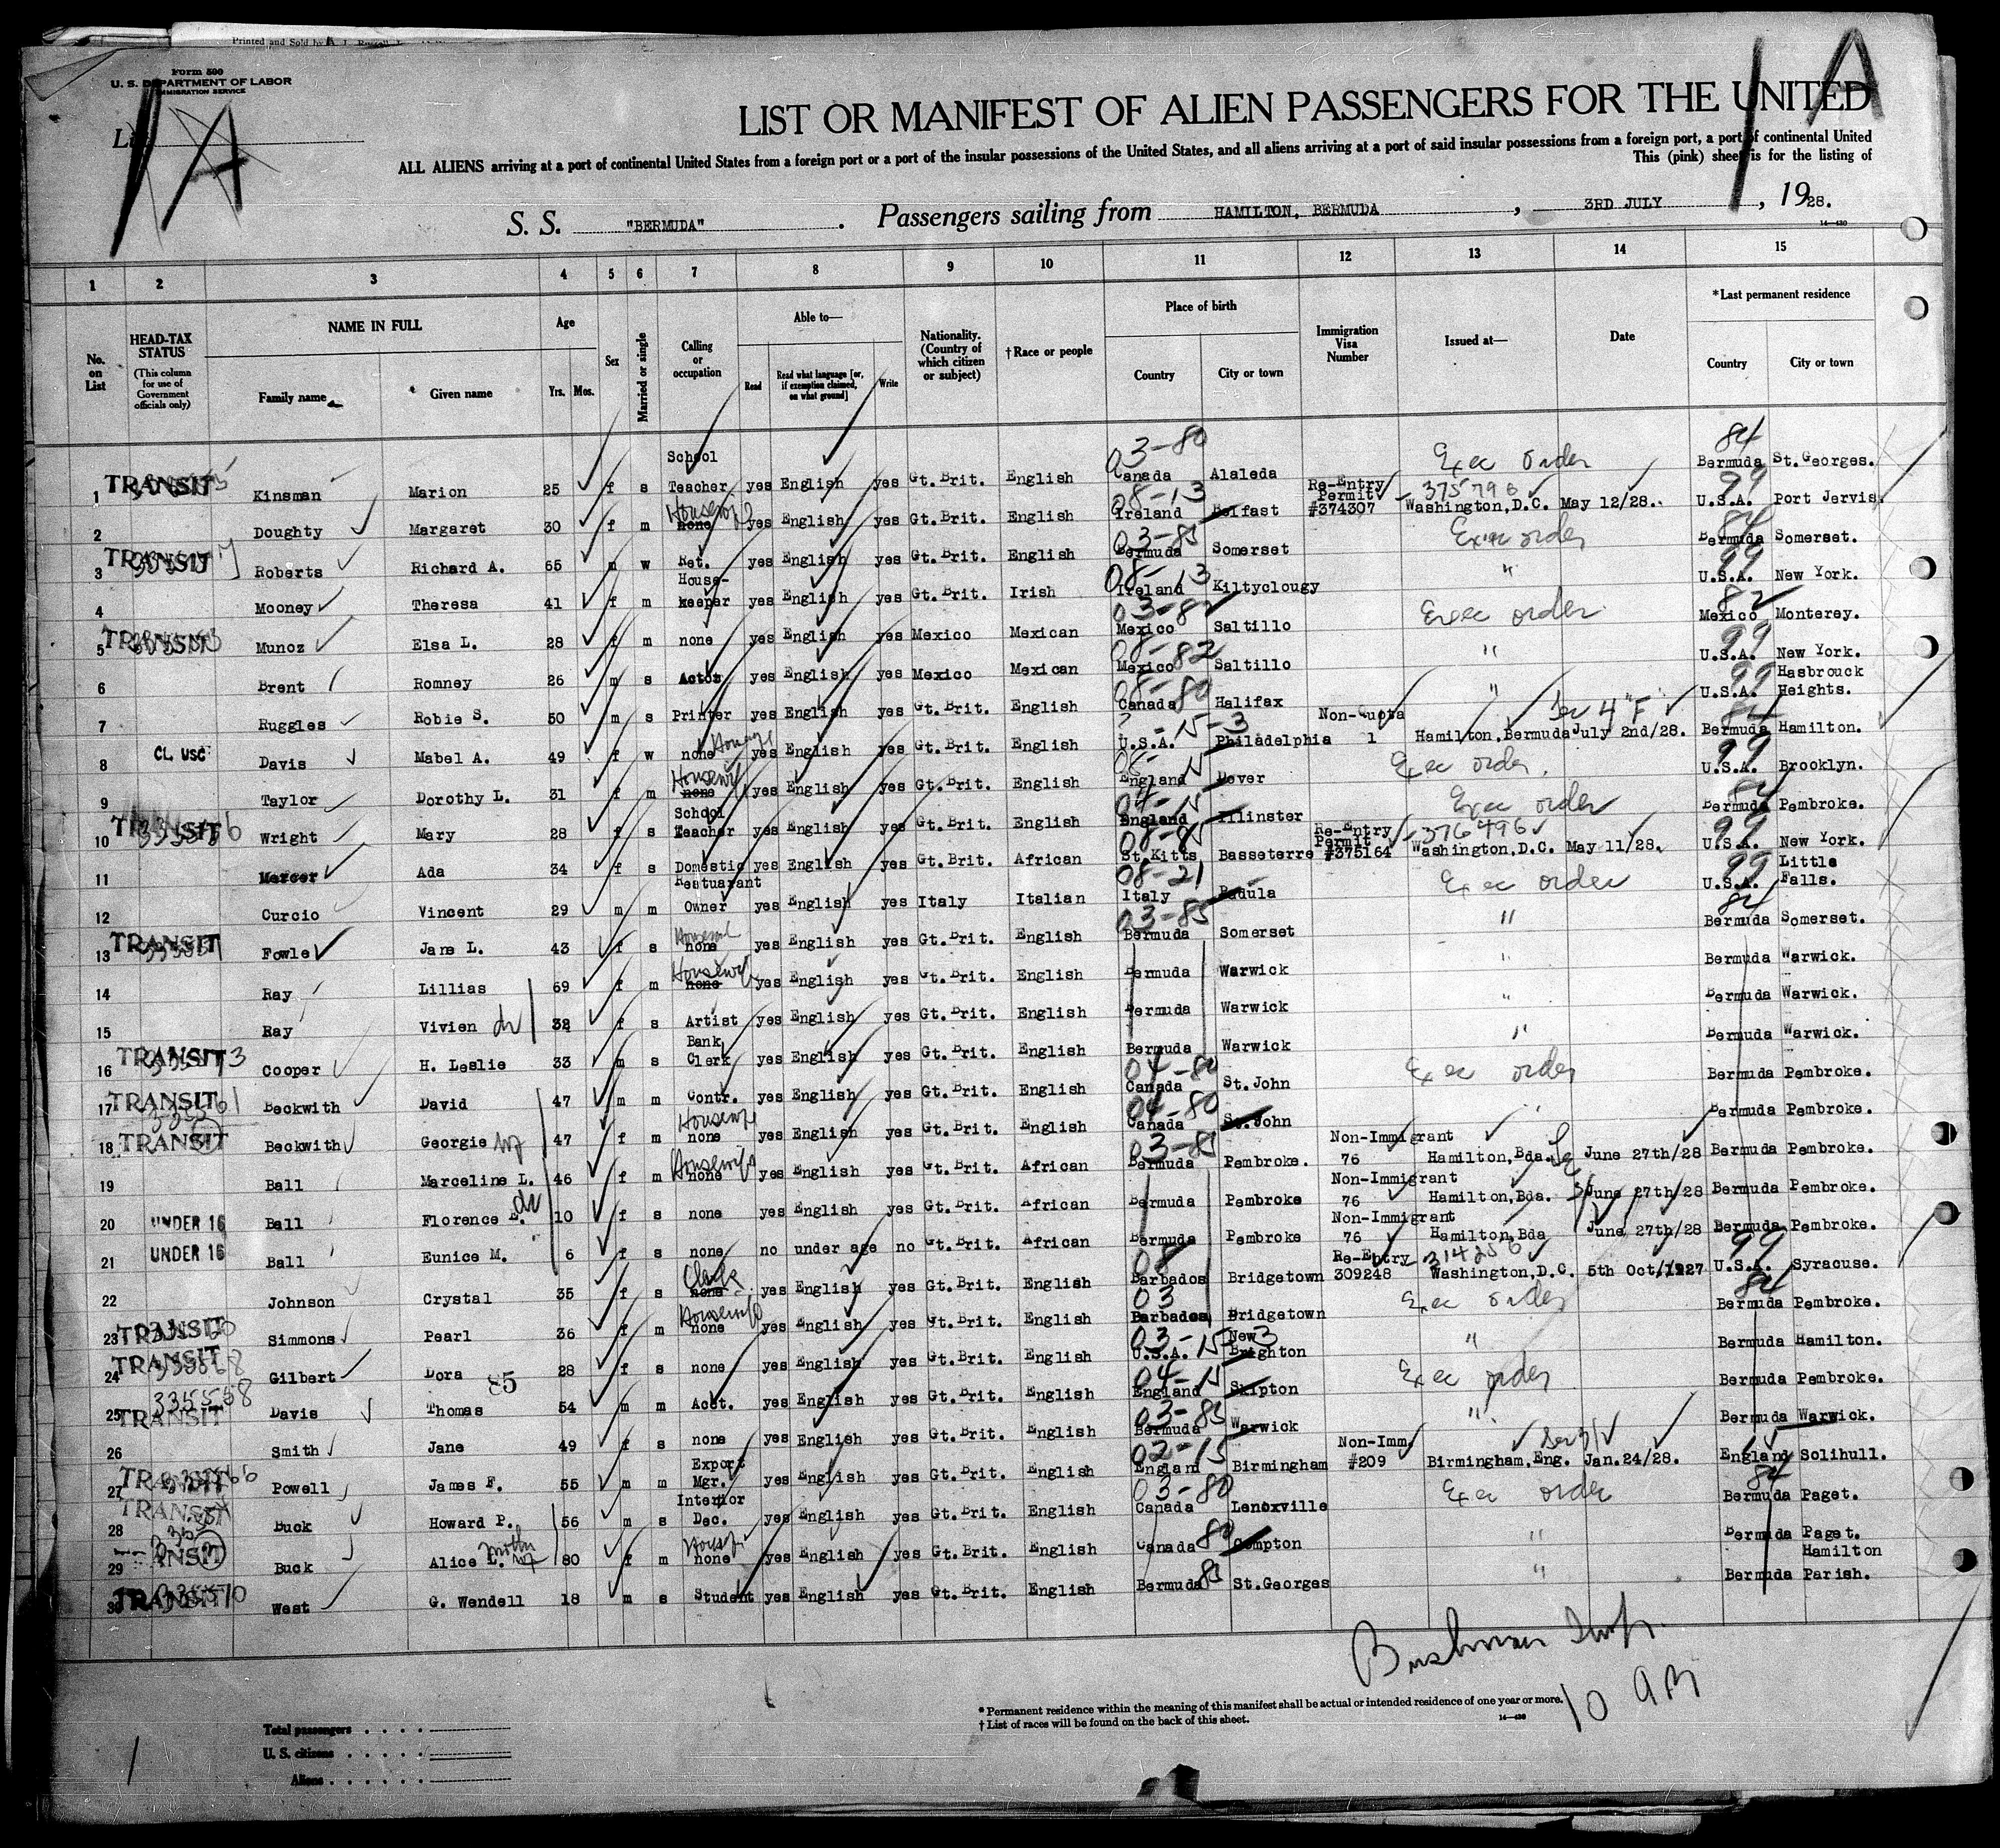 Printed and Sold by
Form 500
U. S. DEPARTMENT OF LABOR
IMMIGRATION SERVICE
1A
1A
LIST OR MANIFEST OF ALIEN PASSENGERS FOR THE UNITED
ALL ALIENS arriving at a port of continental United States from a foreign port or a port of the insular possessions of the United States, and all aliens arriving at a port of said insular possessions from a foreign port, a port of continental United
This (pink) sheet is for the listing of
S. S. "BERMUDA". Passengers sailing from HAMILTON, BERMUDA, 3RD JULY, 1928.
14—430
1 2 3 4 5 6 7 8 9 10 11 12 13 14 15
No. on List
HEAD-TAX STATUS (This column for use of Government officials only)
NAME IN FULL
Family name Given name
Age Yrs. Mos.
Sex
Married or single
Calling or occupation
Able to— Read Read what language [or, if exemption claimed, on what ground] Write
Nationality. (Country of which citizen or subject)
†Race or people
Place of birth Country City or town
Immigration Visa Number
Issued at—
Date
*Last permanent residence Country City or town
1 TRANSIT Kinsman Marion 25 f s School Teacher yes English yes Gt. Brit. English 03-80 Canada Alaleda Exec order 84 Bermuda St. Georges.
2 Doughty Margaret 30 f m Housewife none yes English yes Gt. Brit. English 08-13 Ireland Belfast Re-Entry Permit #374307 375796 Washington, D.C. May 12/28. 99 U.S.A. Port Jervis.
3 TRANSIT Roberts Richard A. 65 m w Ret. yes English yes Gt. Brit. English 03-85 Bermuda Somerset Exec order 84 Bermuda Somerset.
4 Mooney Theresa 41 f m House-keeper yes English yes Gt. Brit. Irish 08-13 Ireland Kiltyclougy " 99 U.S.A. New York.
5 TRANSIT Munoz Elsa L. 28 f m none yes English yes Mexico Mexican 03-82 Mexico Saltillo Exec order 82 Mexico Monterey.
6 Brent Romney 26 m s Actor yes English yes Mexico Mexican 08-82 Mexico Saltillo " 99 U.S.A. New York.
7 Ruggles Robie S. 50 m s Printer yes English yes Gt. Brit. English 08-80 Canada Halifax " 99 U.S.A. Hasbrouck Heights.
8 CL USC Davis Mabel A. 49 f w none yes English yes Gt. Brit. English 15-3 U.S.A. Philadelphia Non-Quota 1 Hamilton, Bermuda Sec 4 "F" July 2nd/28. 84 Bermuda Hamilton.
9 Taylor Dorothy L. 31 f m Housewife none yes English yes Gt. Brit. English 08-15 England Dover Exec order. 99 U.S.A. Brooklyn.
10 TRANSIT Wright Mary 28 f s School Teacher yes English yes Gt. Brit. English 04-15 England Illinster Exec order 84 Bermuda Pembroke.
11 Mercer Ada 34 f s Domestic yes English yes Gt. Brit. African 08-85 St. Kitts Basseterre Re-Entry Permit #375164 376496 Washington, D.C. May 11/28. 99 U.S.A. New York.
12 Curcio Vincent 29 m m Restuarant Owner yes English yes Italy Italian 08-21 Italy Padula Exec order 99 U.S.A. Little Falls.
13 TRANSIT Fowle Jane L. 43 f s none yes English yes Gt. Brit. English 03-85 Bermuda Somerset " 84 Bermuda Somerset.
14 Ray Lillias 69 f m Housewife none yes English yes Gt. Brit. English Bermuda Warwick " Bermuda Warwick.
15 Ray Vivien 32 f s Artist yes English yes Gt. Brit. English Bermuda Warwick " Bermuda Warwick.
16 TRANSIT Cooper H. Leslie 33 m s Bank Clerk yes English yes Gt. Brit. English Bermuda Warwick " Bermuda Warwick.
17 TRANSIT Beckwith David 47 m m Contr. yes English yes Gt. Brit. English 04-80 Canada St. John Exec order Bermuda Pembroke.
18 TRANSIT Beckwith Georgie 47 f m Housewife none yes English yes Gt. Brit. English 04-80 Canada St. John " Bermuda Pembroke.
19 Ball Marceline L. 46 f m Housewife none yes English yes Gt. Brit. African 03-85 Bermuda Pembroke. Non-Immigrant 76 Hamilton, Bda. June 27th/28 Bermuda Pembroke.
20 UNDER 16 Ball Florence E. 10 f s none yes English yes Gt. Brit. African Bermuda Pembroke Non-Immigrant 76 Hamilton, Bda. June 27th/28 Bermuda Pembroke.
21 UNDER 16 Ball Eunice M. 6 f s none no under age no Gt. Brit. African Bermuda Pembroke Non-Immigrant 76 Hamilton, Bda June 27th/28 Bermuda Pembroke.
22 Johnson Crystal 35 f s Clerk none yes English yes Gt. Brit. English 08 Barbados Bridgetown Re-Entry 309248 Washington, D.C. 5th Oct./1927 99 U.S.A. Syracuse.
23 TRANSIT Simmons Pearl 36 f m Housewife none yes English yes Gt. Brit. English 03 Barbados Bridgetown Exec order 84 Bermuda Pembroke.
24 TRANSIT Gilbert Dora 28 f s none yes English yes Gt. Brit. English 03-15-3 U.S.A. New Brighton " Bermuda Hamilton.
85
25 TRANSIT 335558 Davis Thomas 54 m m Acct. yes English yes Gt. Brit. English 04-15 England Skipton Exec order Bermuda Pembroke.
26 Smith Jane 49 f s none yes English yes Gt. Brit. English 03-85 Bermuda Warwick " Bermuda Warwick.
27 TRANSIT Powell James F. 55 m m Export Mgr. yes English yes Gt. Brit. English 02-15 England Birmingham Non-Imm. #209 Birmingham. Eng. Jan. 24/28. 15 England Solihull.
28 TRANSIT Buck Howard P. 56 m s Interior Dec. yes English yes Gt. Brit. English 03-80 Canada Lenoxville Exec order 84 Bermuda Paget.
29 TRANSIT Buck Alice L. mother 80 f m none yes English yes Gt. Brit. English Canada 80 Compton " Bermuda Paget.
30 TRANSIT West G. Wendell 18 m s Student yes English yes Gt. Brit. English Bermuda 85 St. Georges " Bermuda Hamilton Parish.
10 AM
* Permanent residence within the meaning of this manifest shall be actual or intended residence of one year or more.
† List of races will be found on the back of this sheet.
14—430
Total passengers
U. S. citizens
Aliens